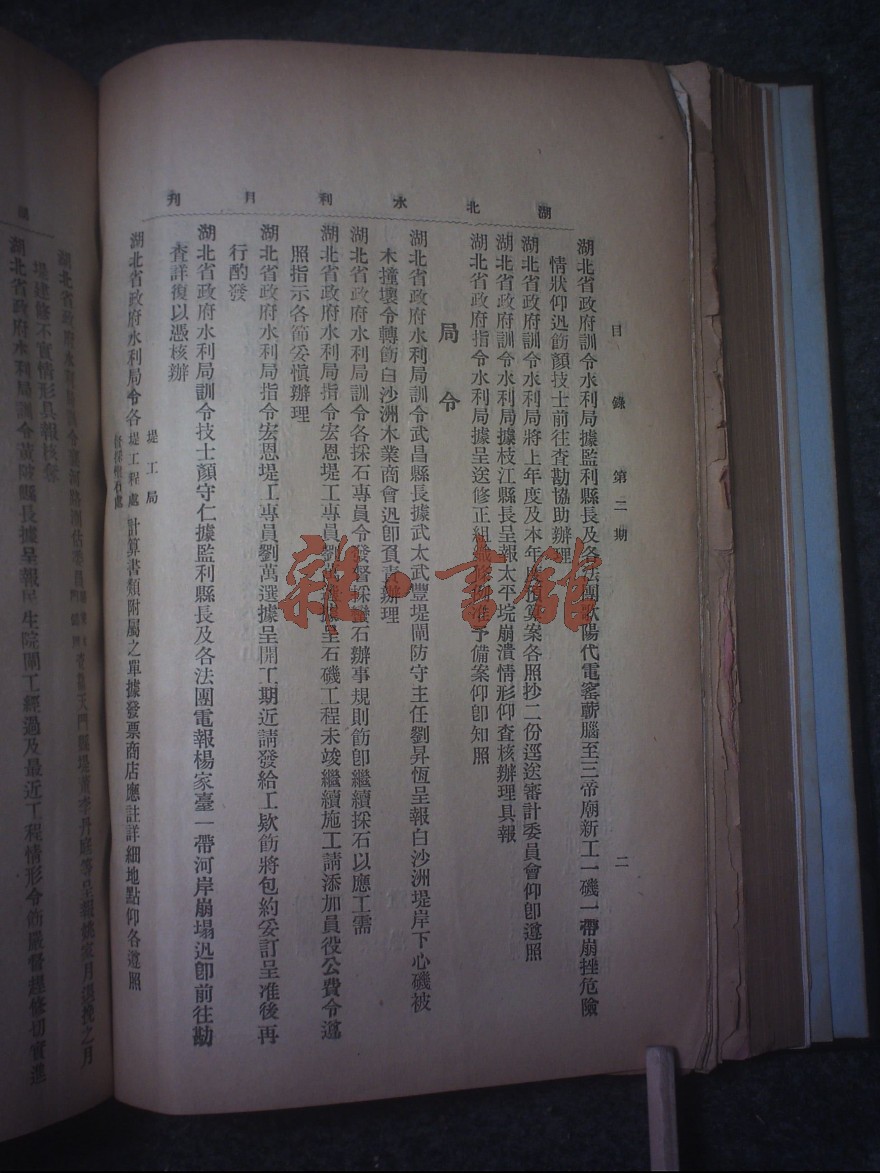 湖北水利月刊
目錄 第二期 二
湖北省政府訓令水利局據監利縣長及各法團歌陽代電窰蘄腦至三帝廟新工一磯一帶崩挫危險
情狀仰迅飭顏技士前往查勘協助辦理
湖北省政府訓令水利局將上年度及本年度預算案各照抄二份逕送審計委員會仰卽遵照
湖北省政府訓令水利局據枝江縣長呈報太平垸崩潰情形仰查核辦理具報
湖北省政府指令水利局據呈送修正組織條例准予備案仰卽知照
局令
湖北省政府水利局訓令武昌縣長據武太武豐堤閘防守主任劉昇恆呈報白沙洲堤岸下心磯被
木撞壞令轉飭白沙洲木業商會迅卽負責辦理
湖北省政府水利局訓令各採石專員令發督採蠻石辦事規則飭卽繼續採石以應工需
湖北省政府水利局指令宏恩堤工專員劉萬選據呈石磯工程未竣繼續施工請添加員役公費令遵
照指示各節妥愼辦理
湖北省政府水利局指令宏恩堤工專員劉萬選據呈開工期近請發給工欵飭將包約妥訂呈准後再
行酌發
湖北省政府水利局訓令技士顏守仁據監利縣長及各法團電報楊家臺一帶河岸崩塌迅卽前往勘
查詳復以憑核辦
湖北省政府水利局令各堤工局 堤工程處 計算書類附屬之單據發票商店應註詳細地點仰各遵照
堤建修不宜情形具報核奪
湖北省政府水利局訓令黃陂縣長據呈報民生院閘工經過及最近工程情形令飭嚴督趕修切實進
雜·書館